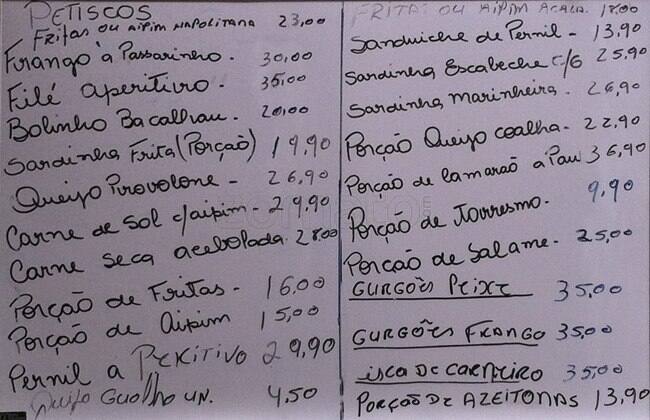 PETISCOS
FRITAS OU AIPIM NAPOLITANA 23,00
Frango à Passarinho. 30,00
Filé aperitivo. 35,00
Bolinho Bacalhau. 20,00
Sardinha Frita (Porção) 19,90
Queijo Provolone - 26,90
Carne de Sol c/aipim - 29,90
Carne seca acebolada. 28,00
Porção de Fritas - 16,00
Porção de Aipim 15,00
Pernil a PERITIVO 29,90
Queijo GUALHO UN. 4,50
FRITAS OU AIPIM ACALA. 18,00
Sanduiche de Pernil - 13,90
Sardinha Escabeche c/6 25,90
Sardinha Marinheira - 26,90
Porção Queijo coalha - 22,90
Porção de Camarão a Pau 36,90
Porção de Torresmo. 9,90
Porção de Salame. 25,00
GURGÕES PEIXE 35,00
GURGÕES FRANGO 35,00
isca DE CARNEIRO 35,00
PORÇÃO DE AZEITONAS 13,90